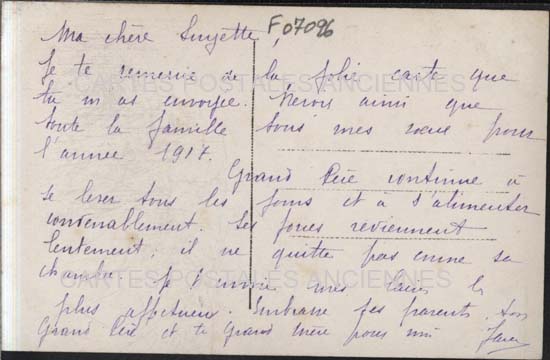 F07096
Ma chère Suzette,
Je te remercie de la jolie carte que
tu m'as envoyée. Reçois ainsi que
toute la famille tous mes vœux pour
l'année 1917.
Grand Père continue à
se lever tous les jours et à s'alimenter
convenablement. Ses forces reviennent
lentement, il ne quitte pas encore sa
chambre. Je t'envoie mes baisers les
plus affectueux. Embrasse tes parents, ton
Grand Père et ta Grand Mère pour moi
CARTES POSTALES ANCIENNES
CARTES POSTALES ANCIENNES